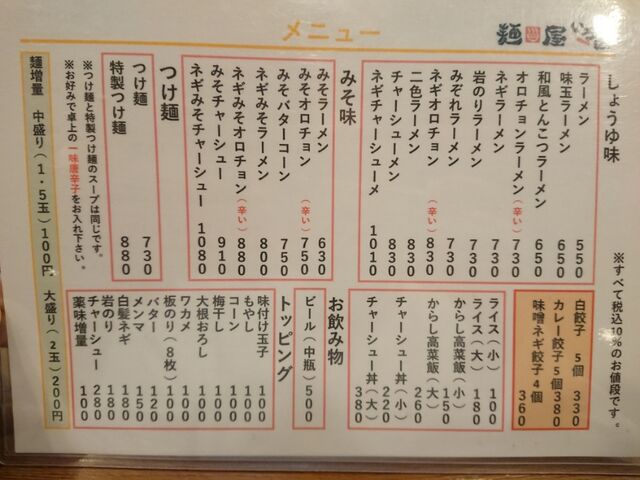 メニュー
麺屋
※すべて税込10%のお値段です。
しょうゆ味
ラーメン 550
味玉ラーメン 650
和風とんこつラーメン 650
オロチョンラーメン(辛い) 730
ネギラーメン 730
岩のりラーメン 730
みぞれラーメン 730
ネギオロチョン(辛い) 830
二色ラーメン 830
チャーシューメン 830
ネギチャーシューメ 1010
みそ味
みそラーメン 630
みそオロチョン(辛い) 750
みそバターコーン 750
ネギみそラーメン 800
ネギみそオロチョン(辛い) 880
みそチャーシュー 910
ネギみそチャーシュー 1080
つけ麺
つけ麺 730
特製つけ麺 880
※つけ麺と特製つけ麺のスープは同じです。
※お好みで卓上の一味唐辛子をお入れ下さい。
白餃子 5個 330
カレー餃子5個 380
味噌ネギ餃子4個 360
ライス(小) 100
ライス(大) 180
からし高菜飯(小) 150
からし高菜飯(大) 260
チャーシュー丼(小) 220
チャーシュー丼(大) 380
お飲み物
ビール(中瓶) 500
トッピング
味付け玉子 100
もやし 100
コーン 100
梅干し 100
大根おろし 100
ワカメ 100
板のり(8枚) 100
バター 120
メンマ 150
白髪ネギ 180
岩のり 180
チャーシュー 280
薬味増量 100
麺増量 中盛り(1・5玉)100円 大盛り(2玉)200円